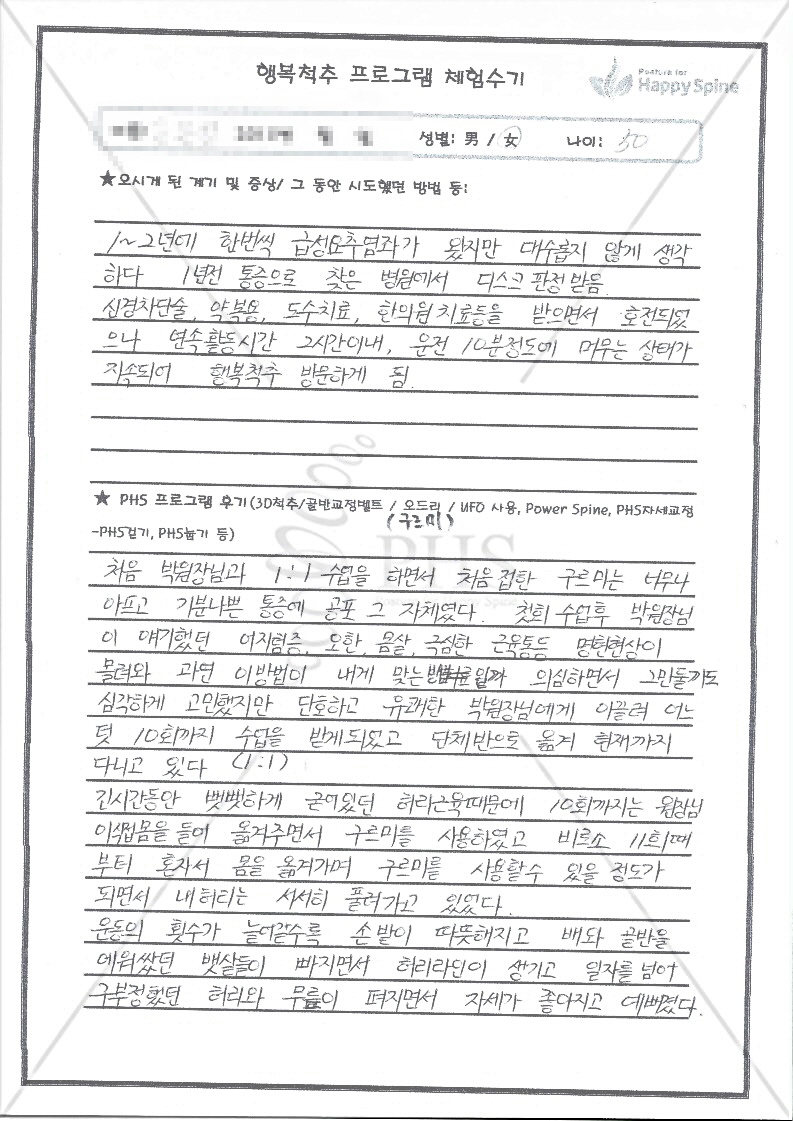 행복척추 프로그램 체험수기
Posture for
Happy Spine
성별: 男 / 女 나이: 50
★오시게 된 계기 및 증상/ 그 동안 시도했던 방법 등:
1~2년에 한번씩 급성요추염좌가 왔지만 대수롭지 않게 생각
하다 1년전 통증으로 찾은 병원에서 디스크 판정 받음.
신경차단술, 약복용, 도수치료, 한의원 치료등을 받으면서 호전되었
으나 연속활동시간 2시간이내, 운전 10분정도에 머무는 상태가
지속되어 행복척추 방문하게 됨.
★ PHS 프로그램 후기(3D척추/골반교정벨트 / 오드리 / UFO 사용, Power Spine, PHS자세교정
(구르미)
-PHS걷기, PHS눕기 등)
PHS
처음 박원장님과 1:1 수업을 하면서 처음 접한 구르미는 너무나
아프고 기분나쁜 통증에 공포 그 자체였다. 첫회 수업후 박원장님
이 얘기했던 어지럼증, 오한, 몸살, 극심한 근육통등 명현현상이
몰려와 과연 이방법이 내게 맞는 일까 의심하면서 그만둘까도
심각하게 고민했지만 단호하고 유쾌한 박원장님에게 이끌려 어느
덧 10회까지 수업을 받게되었고 단체반으로 옮겨 현재까지
다니고 있다 (1:1)
긴시간동안 뻣뻣하게 굳어있던 허리근육때문에 10회까지는 원장님
이 몸을 들어 옮겨주면서 구르미를 사용하였고 비로소 11회때
부터 혼자서 몸을 옮겨가며 구르미를 사용할수 있을 정도가
되면서 내허리는 서서히 풀려가고 있었다.
운동의 횟수가 늘어갈수록 손발이 따뜻해지고 배와 골반을
에워쌌던 뱃살들이 빠지면서 허리라인이 생기고 일자를 넘어
구부정했던 허리와 무릎이 펴지면서 자세가 좋아지고 예뻐졌다.